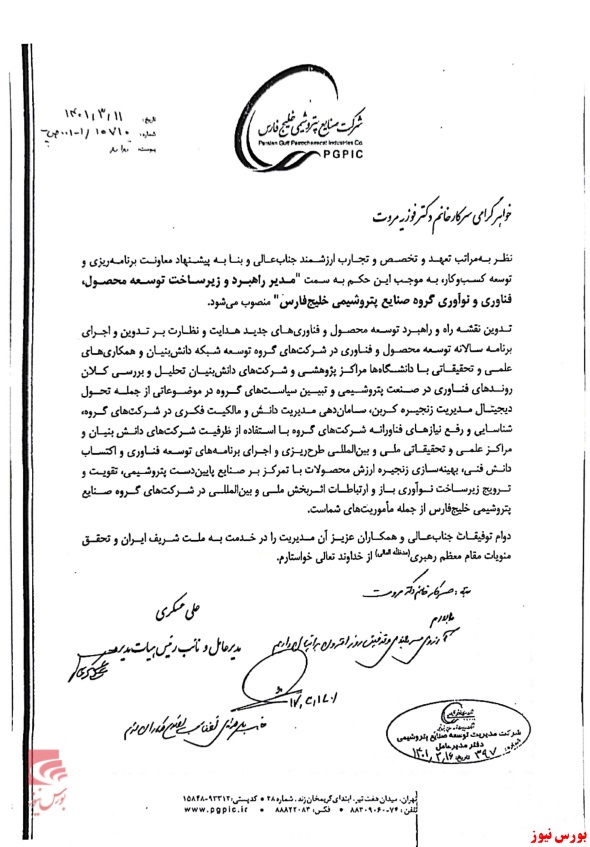 شرکت صنایع پتروشیمی خلیج فارس
Persian Gulf Petrochemical Industries Co.
PGPIC
تاریخ: ۱۴۰۱/۳/۱۱
شماره:
پیوست: ندارد
خواهر گرامی سرکار خانم دکتر فوزیه مروت
نظر به مراتب تعهد و تخصص و تجارب ارزشمند جناب‌عالی و بنا به پیشنهاد معاونت برنامه‌ریزی و
توسعه کسب‌وکار، به موجب این حکم به سمت "مدیر راهبرد و زیرساخت توسعه محصول،
فناوری و نوآوری گروه صنایع پتروشیمی خلیج‌فارس" منصوب می‌شود.
تدوین نقشه راه و راهبرد توسعه محصول و فناوری‌های جدید هدایت و نظارت بر تدوین و اجرای
برنامه سالانه توسعه محصول و فناوری در شرکت‌های گروه توسعه شبکه دانش‌بنیان و همکاری‌های
علمی و تحقیقاتی با دانشگاه‌ها مراکز پژوهشی و شرکت‌های دانش‌بنیان تحلیل و بررسی کلان
روندهای فناوری در صنعت پتروشیمی و تبیین سیاست‌های گروه در موضوعاتی از جمله تحول
دیجیتال مدیریت زنجیره کربن، سامان‌دهی مدیریت دانش و مالکیت فکری در شرکت‌های گروه،
شناسایی و رفع نیازهای فناورانه شرکت‌های گروه با استفاده از ظرفیت شرکت‌های دانش بنیان و
مراکز علمی و تحقیقاتی ملی و بین‌المللی طرح‌ریزی و اجرای برنامه‌های توسعه فناوری و اکتساب
دانش فنی، بهینه‌سازی زنجیره ارزش محصولات با تمرکز بر صنایع پایین‌دست پتروشیمی، تقویت و
ترویج زیرساخت نوآوری باز و ارتباطات اثربخش ملی و بین‌المللی در شرکت‌های گروه صنایع
پتروشیمی خلیج‌فارس از جمله مأموریت‌های شماست.
دوام توفیقات جناب‌عالی و همکاران عزیز آن مدیریت را در خدمت به ملت شریف ایران و تحقق
منویات مقام معظم رهبری (مدظله العالی) از خداوند تعالی خواستارم.
علی عسکری
مدیرعامل و نائب رئیس هیات مدیره
شرکت مدیریت توسعه صنایع پتروشیمی
دفتر مدیرعامل
تهران، میدان هفت تیر، ابتدای کریمخان زند، شماره ۳۸ • کدپستی: ۹۳۳۱۲-۱۵۸۴۸
تلفن: ۷۴-۸۸۳۰۹۰۶۰ • فکس: ۸۸۸۲۲۰۸۳ • www.pgpic.ir
بورس نیوز
بورس نیوز